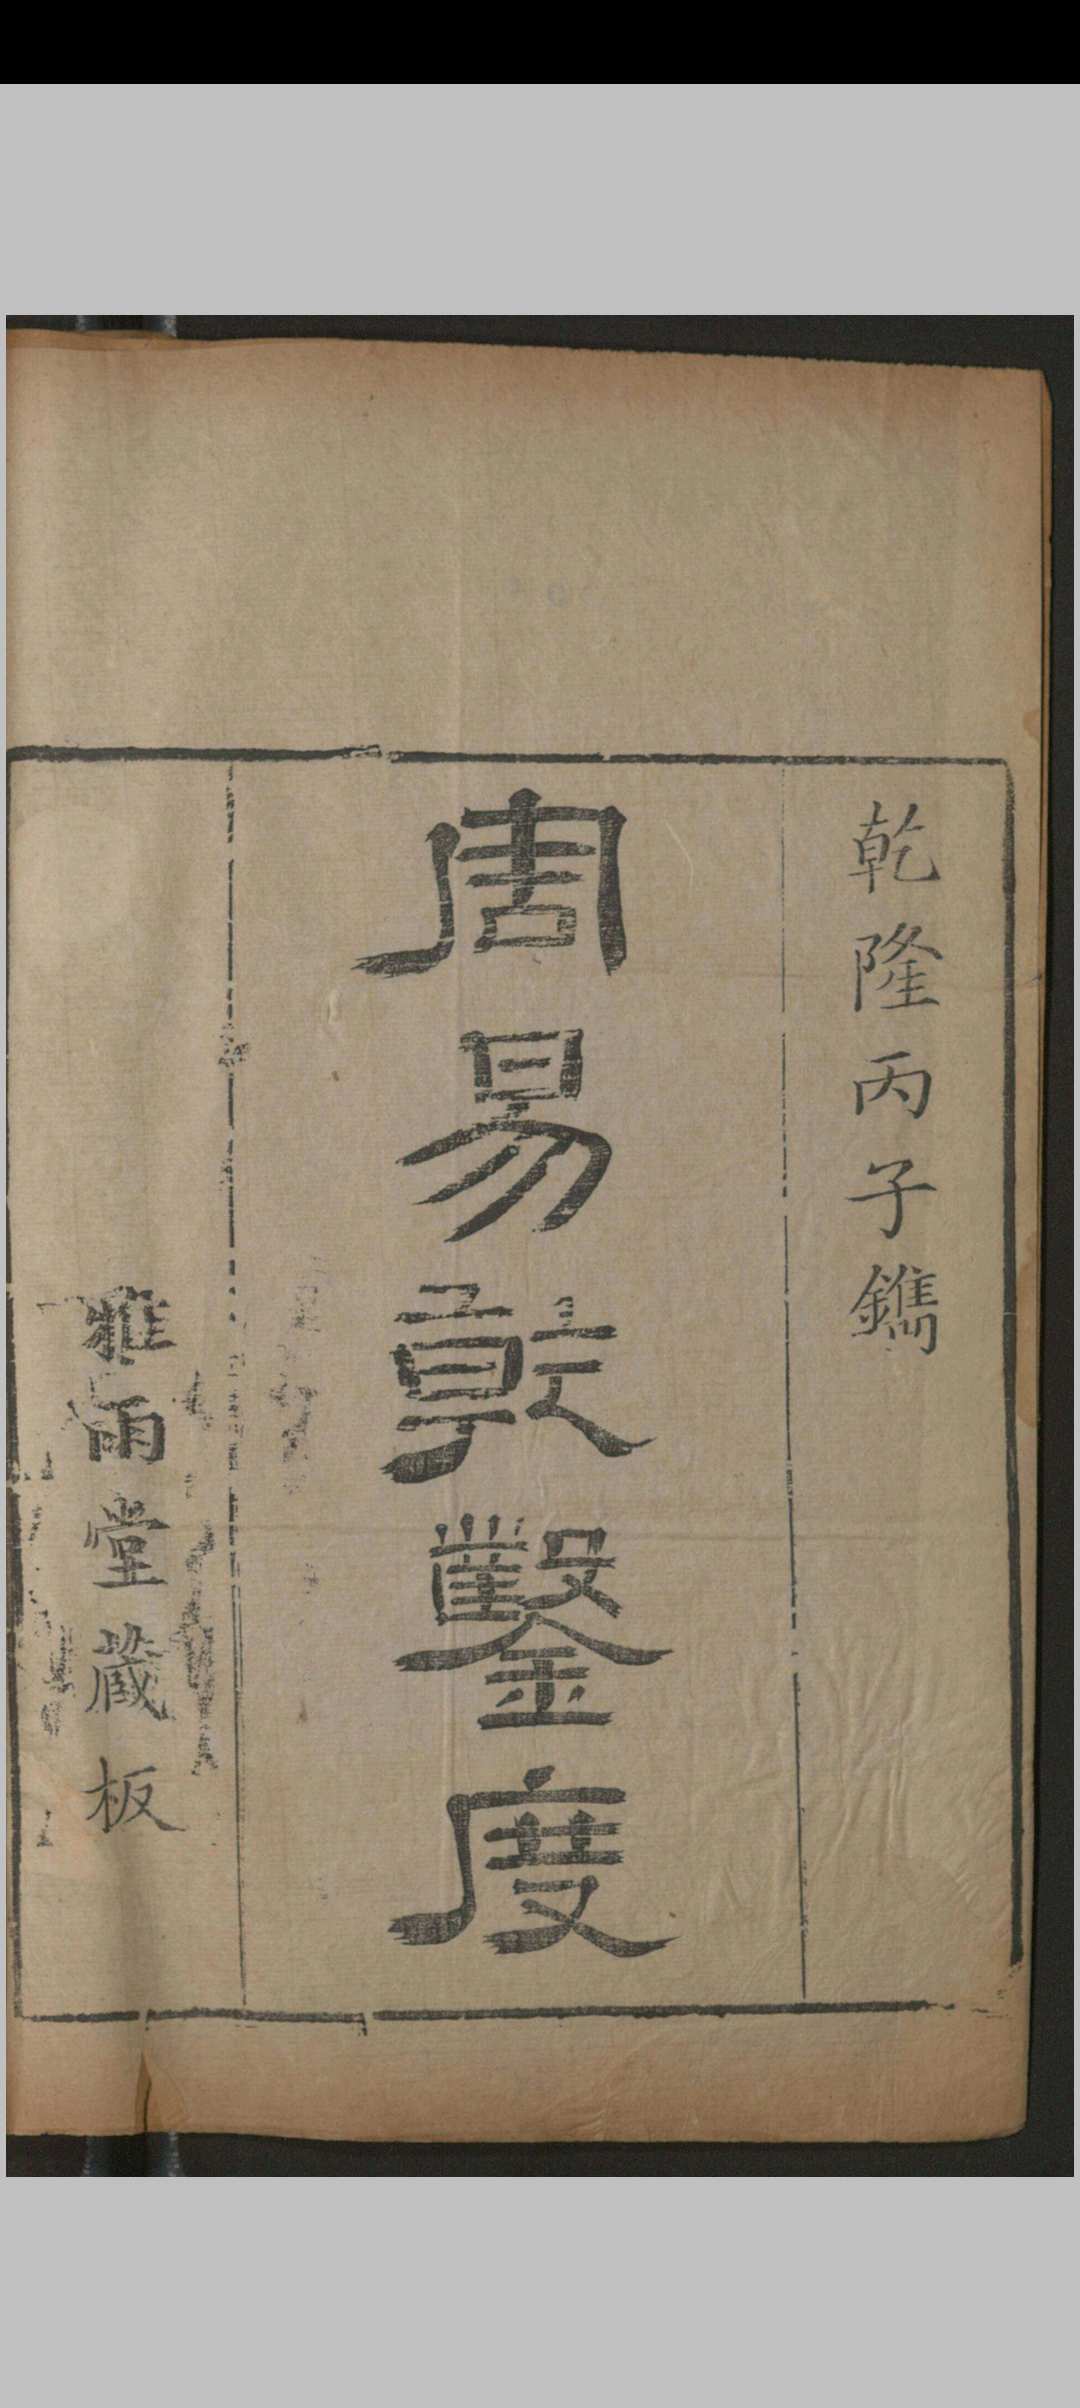 乾隆丙子鐫
周易乾鑿度
雅雨堂藏板